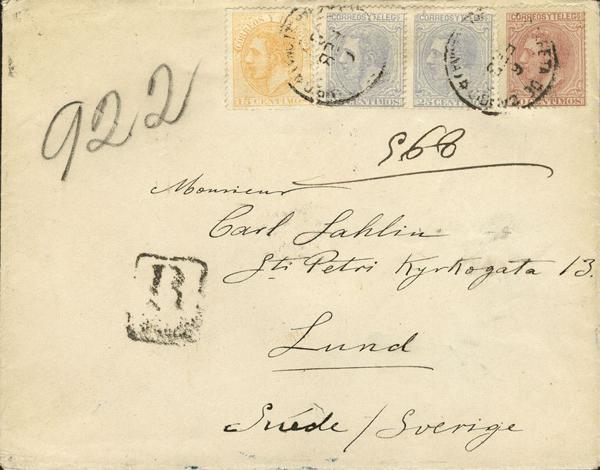 CORREOS Y TELEGS
CORREOS Y TELEGS
CORREOS Y TELEGS
15 CENTIMOS
CENTIMOS
25 CENTIMOS
CENTIMOS
922
568
Monsieur
Carl Sahlin
Sti Petri Kyrkogata 13.
R
Lund
Suéde / Sverige